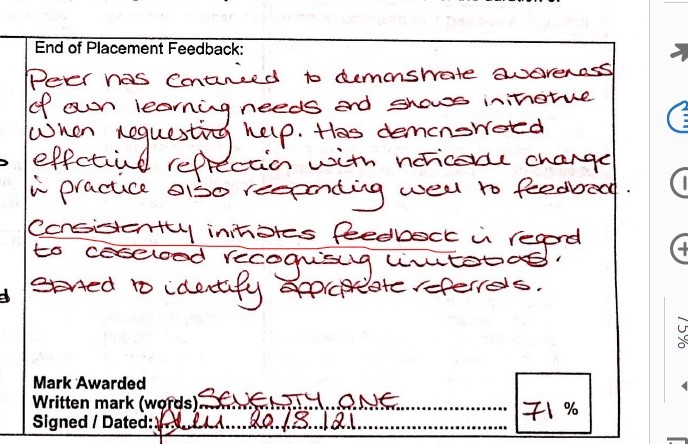 End of Placement Feedback:
Peter has contineed to demonstrate awareness
of own learning needs and shows initiative
when requesting help. Has demonstrated
effective reflection with noticable change
in practice also responding well to feedback.
Consistently initiates feedback in regard
to caseload recognising limitations.
Started to identify appropriate referrals.
Mark Awarded
Written mark (words) SEVENTY ONE
71 %
Signed / Dated: 20/8/21
75%